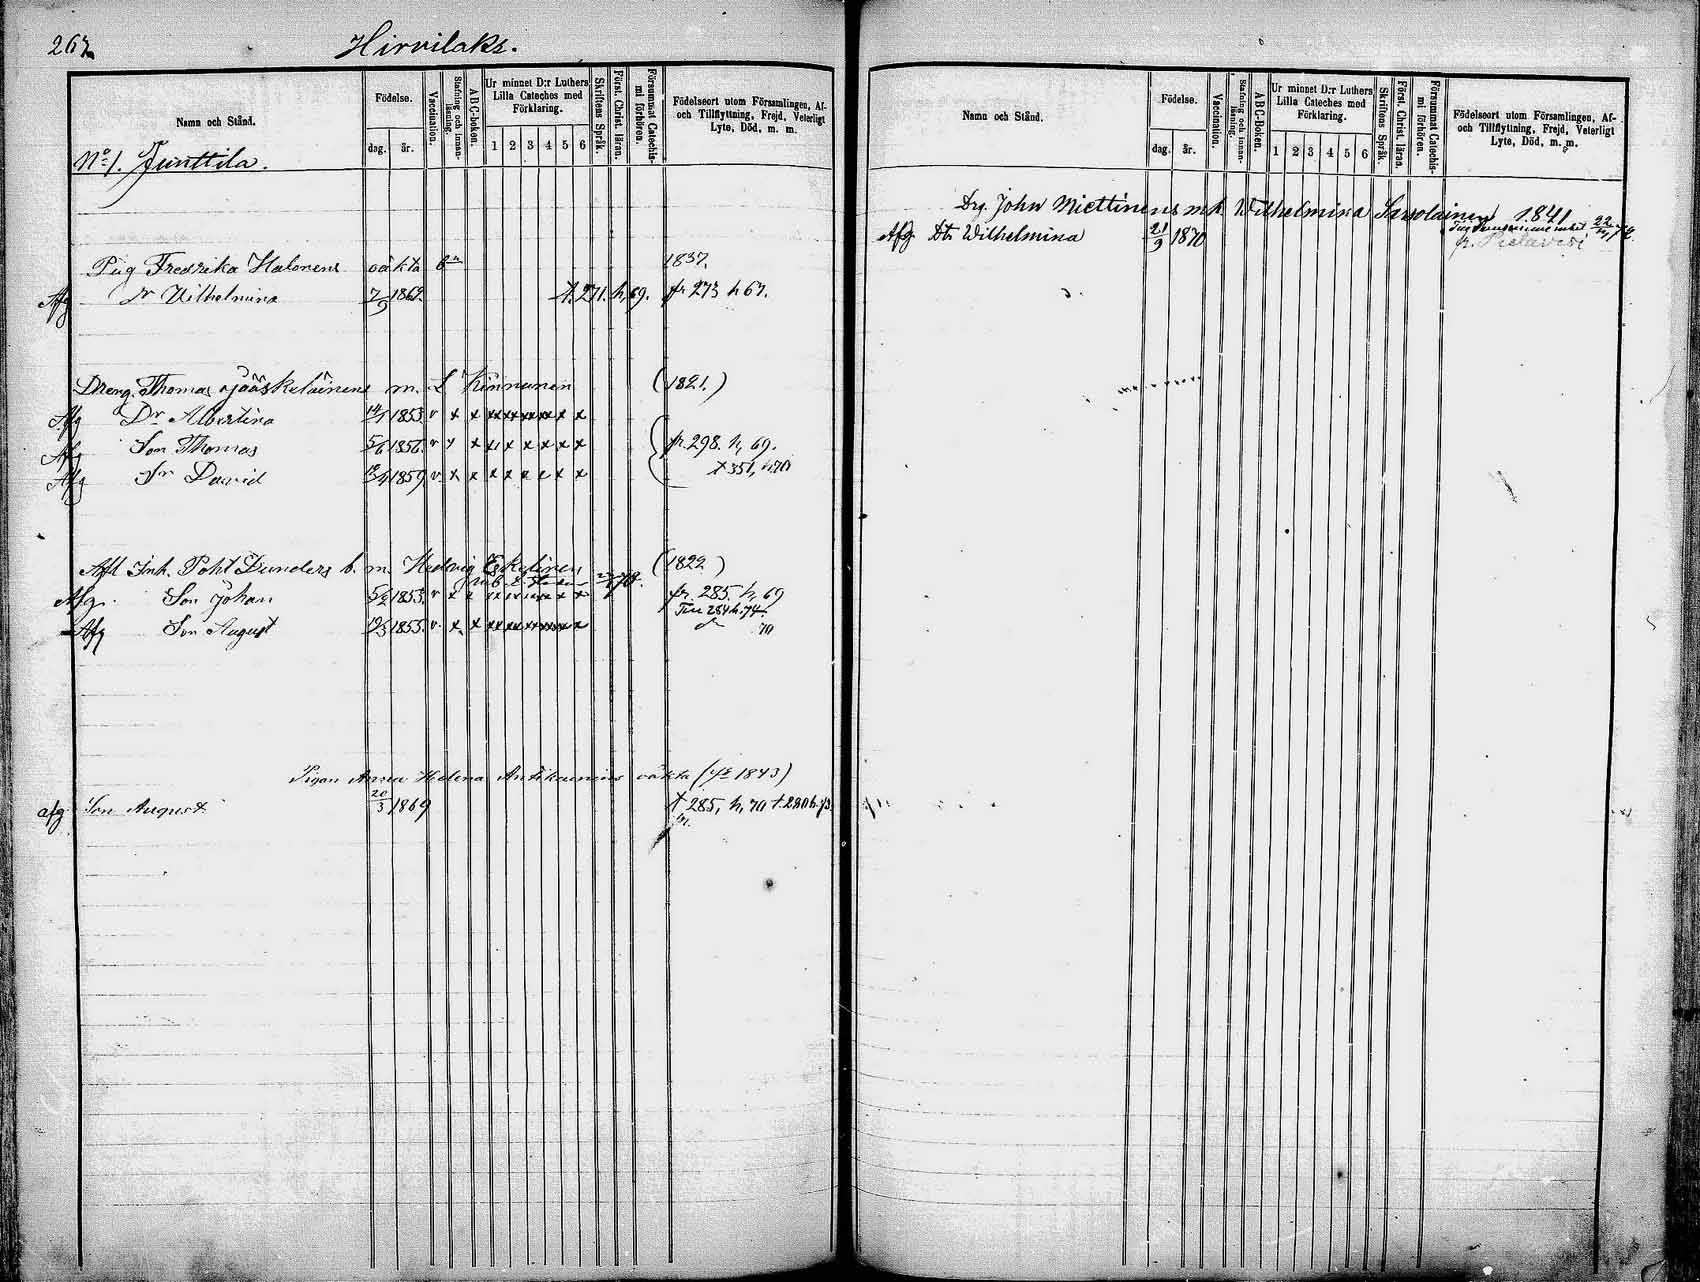 267
Hirvilaks.
Namn och Stånd.
Födelse.
dag.
år.
Vaccination.
Stafning och innanläsning.
A B C-boken.
Ur minnet D:r Luthers Lilla Cateches med Förklaring.
1 2 3 4 5 6
Skriftens Språk.
Först. Christ. läran.
Försummat Catechismi förhören.
Födelseort utom Församlingen, Af- och Tillflyttning, Frejd, Veterligt Lyte, Död, m. m.
No 1. Junttila.
Pig Fredrika Halonens oäkta 1837.
Afg Wilhelmina 7/9 1869. 271. h, 69. fr 273 h 67.
Dreng. Thomas Jääskeläinens m. L Kinnunen (1821.)
Afg Dr Albertina 1853. v x x xx xx xx xx x x
Afg Son Thomas 5/6 1856. v x x x x x x x x fr. 298. h, 69.
Afg Sr David 1859 v. x x x x x x x x 351, h.70
Afl Inh. Pohl Dunders b. m. Hedvig Eskelinen (1822)
Afg. Son Johan 5/2 1853. v x x fr. 285. h, 69
Till 284 h. 74.
Afg Son August 1855. v. x x 70
Pigan Anna Helena Antikainens oäkta (1843)
afg Son August. 20/3 1869 285, h, 70 t. 280 h.
Namn och Stånd.
Födelse.
dag.
år.
Vaccination.
Stafning och innanläsning.
A B C-Boken.
Ur minnet D:r Luthers Lilla Cateches med Förklaring.
1 2 3 4 5 6
Skriftens Språk.
Först. Christ. läran.
Försummat Catechismi förhören.
Födelseort utom Församlingen, Af- och Tillflyttning, Frejd, Veterligt Lyte, Död, m. m.
Drg. John Miettinens m h Wilhelmina Savolainen 1841
Afg Dtr Wilhelmina 21/9 1870 fr. Pielavesi